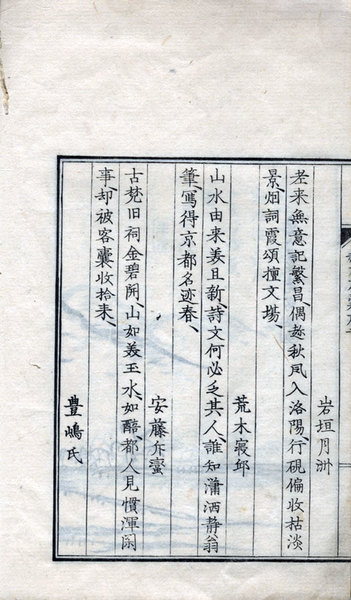 岩垣月洲
老来無意記繁昌、偶趁秋風入洛陽、行硯偏收枯淡
景、烟詞霞頌擅文場、
荒木寝邱
山水由来美且新、詩文何必乏其人、誰知瀟洒静翁
筆、寫得京都名迹春、
安藤斥蠻
古梵旧祠金碧開、山如美玉水、如醅、都人見慣渾閑
事、却被客囊收拾来、
豊嶋氏